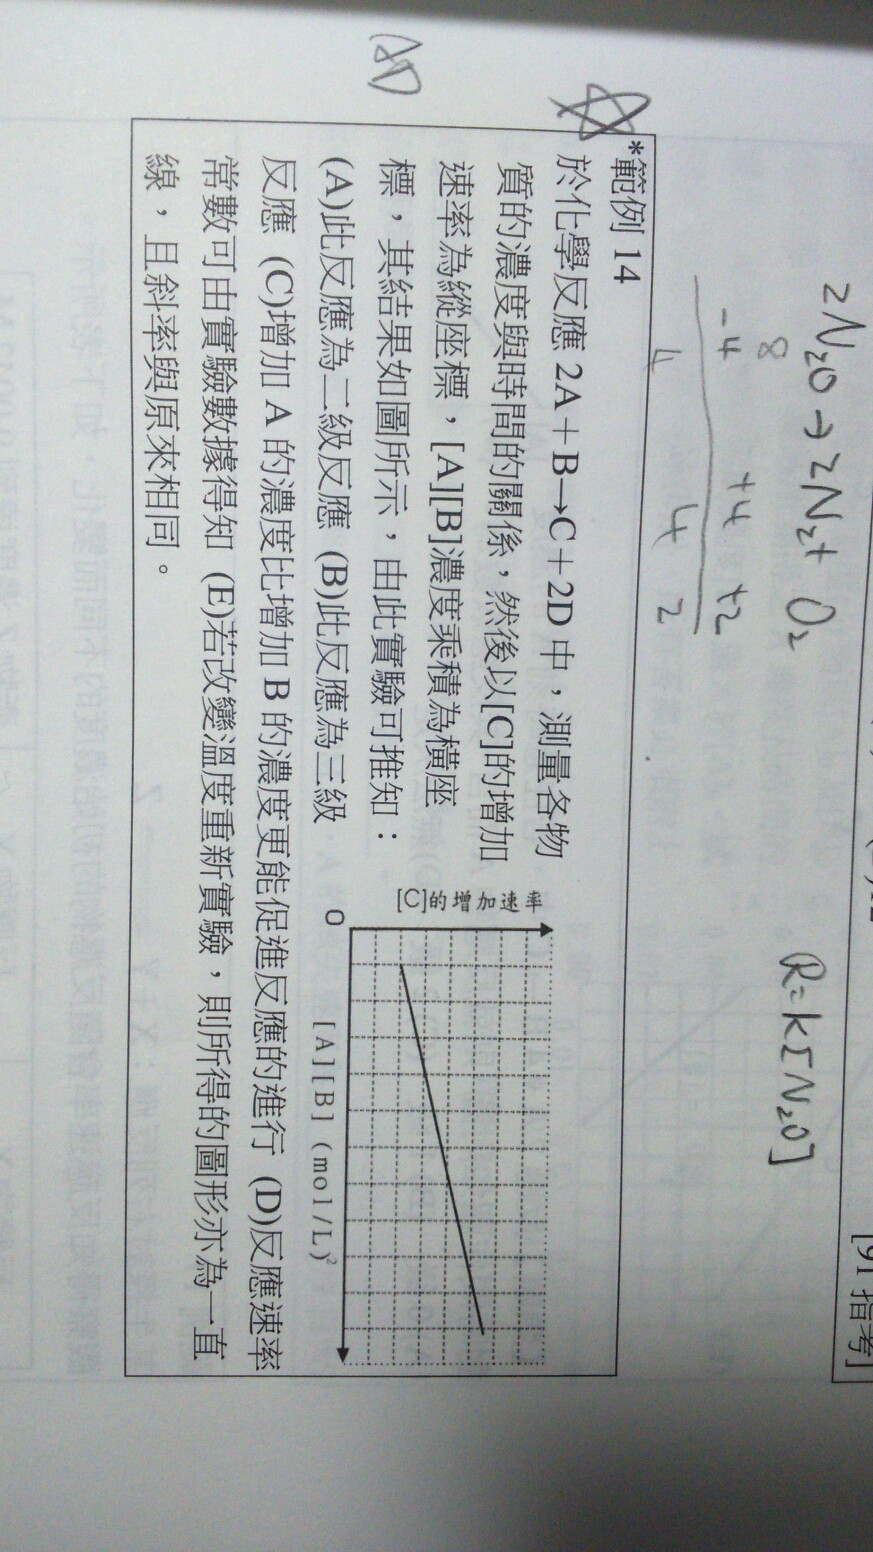 2N₂O → 2N₂ + O₂
R = k[N₂O]
8
-4 +4 +2
4 4 2
[91 指考]
AD
*範例 14
於化學反應 2A + B→C + 2D 中，測量各物
質的濃度與時間的關係，然後以[C]的增加
速率為縱座標，[A][B]濃度乘積為橫座
標，其結果如圖所示，由此實驗可推知：
(A)此反應為二級反應 (B)此反應為三級
反應 (C)增加 A 的濃度比增加 B 的濃度更能促進反應的進行 (D)反應速率
常數可由實驗數據得知 (E)若改變溫度重新實驗，則所得的圖形亦為一直
線，且斜率與原來相同。
[C]的增加速率
0
[A][B] (mol/L)²